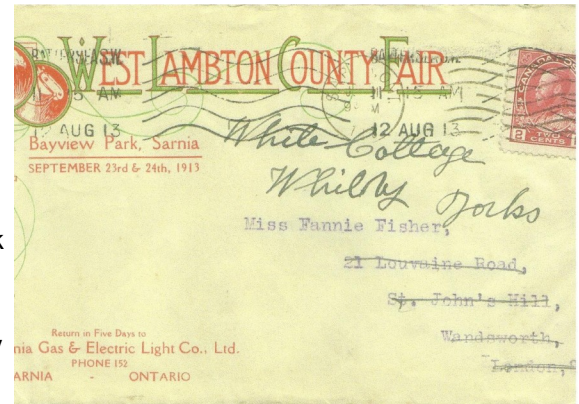 WEST LAMBTON COUNTY FAIR
BATTERSEA S.W.
11 15 AM
12 AUG 13
11 15 AM
12 AUG 13
CANADA
2 TWO CENTS
Bayview Park, Sarnia
SEPTEMBER 23rd & 24th, 1913
White Cottage
Whitby Yorks
Miss Fannie Fisher,
21 Louvaine Road,
St. John's Hill,
Wandsworth,
London,
Return in Five Days to
nia Gas & Electric Light Co., Ltd.
PHONE 152
ARNIA - ONTARIO